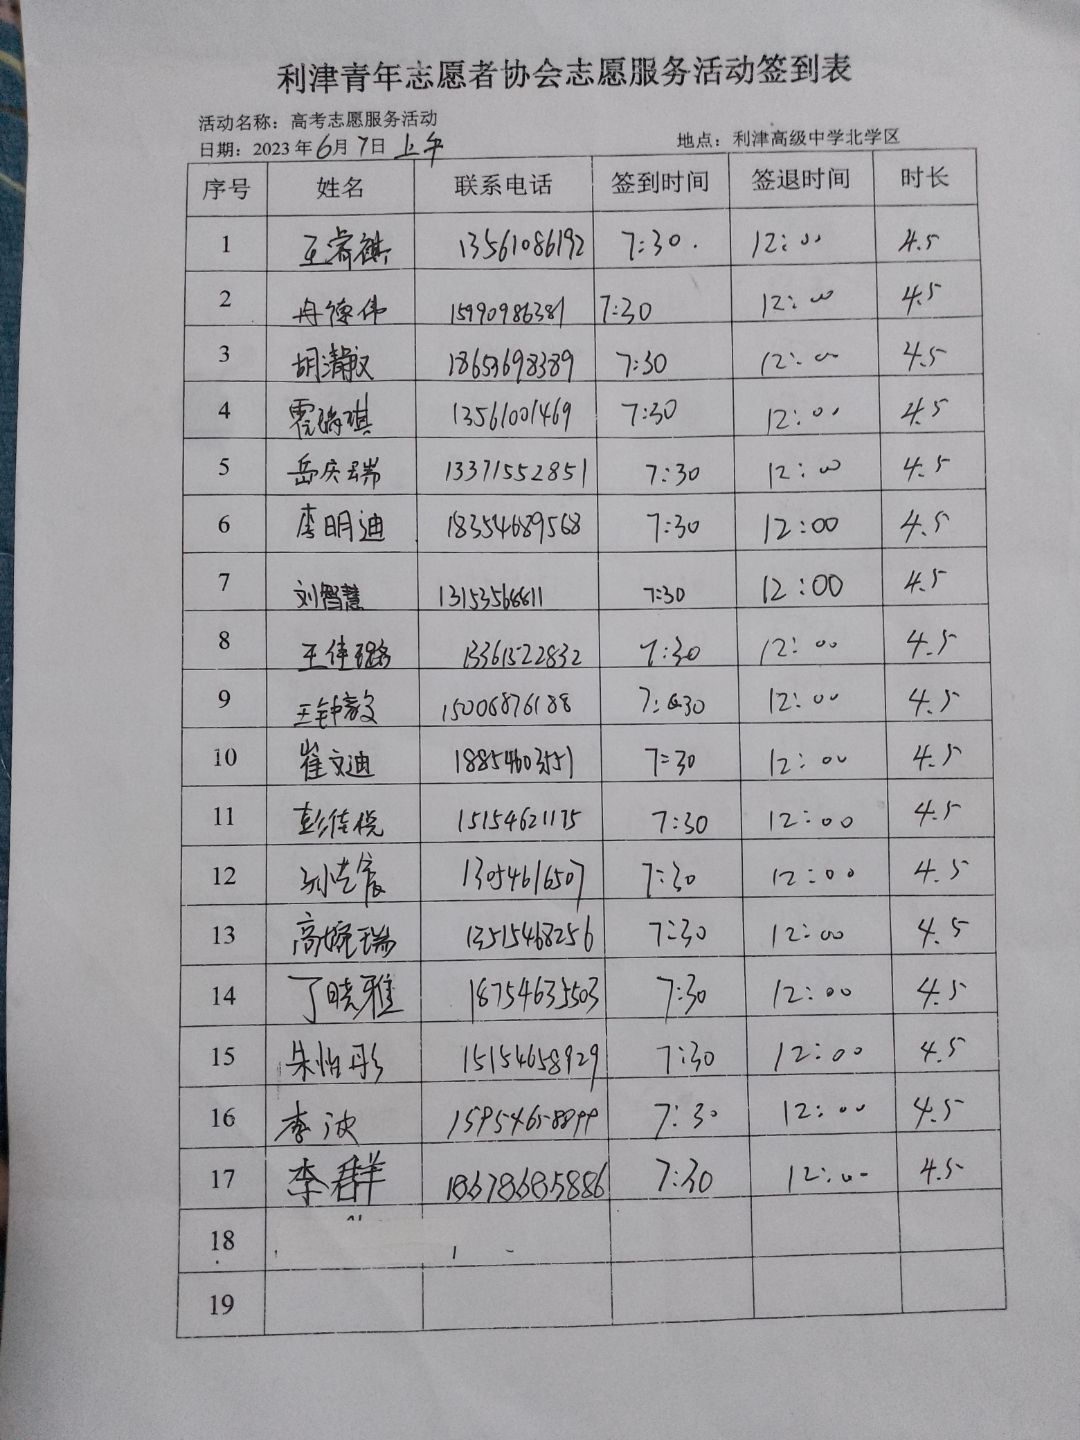 利津青年志愿者协会志愿服务活动签到表
活动名称：高考志愿服务活动
日期：2023年6月7日 上午 地点：利津高级中学北学区
序号 姓名 联系电话 签到时间 签退时间 时长
1 王睿祺 13561086192 7:30. 12:00 4.5
2 冉德伟 15990986381 7:30 12:00 4.5
3 胡潇敏 18653698389 7:30 12:00 4.5
4 霍瑞琪 13561001469 7:30 12:00 4.5
5 岳庆瑞 13371552851 7:30 12:00 4.5
6 李明迪 18354689568 7:30 12:00 4.5
7 刘智慧 7:30 12:00 4.5
8 王佳璐 13361522832 7:30 12:00 4.5
9 王钟毅 15006876188 7:30 12:00 4.5
10 崔文迪 18854603551 7:30 12:00 4.5
11 彭佳悦 15154621175 7:30 12:00 4.5
12 13054616507 7:30 12:00 4.5
13 高婉瑞 13515468256 7:30 12:00 4.5
14 丁晓雅 18754635503 7:30 12:00 4.5
15 朱怡彤 15154658929 7:30 12:00 4.5
16 李波 15954658899 7:30 12:00 4.5
17 李群 18678685886 7:30 12:00 4.5
18
19